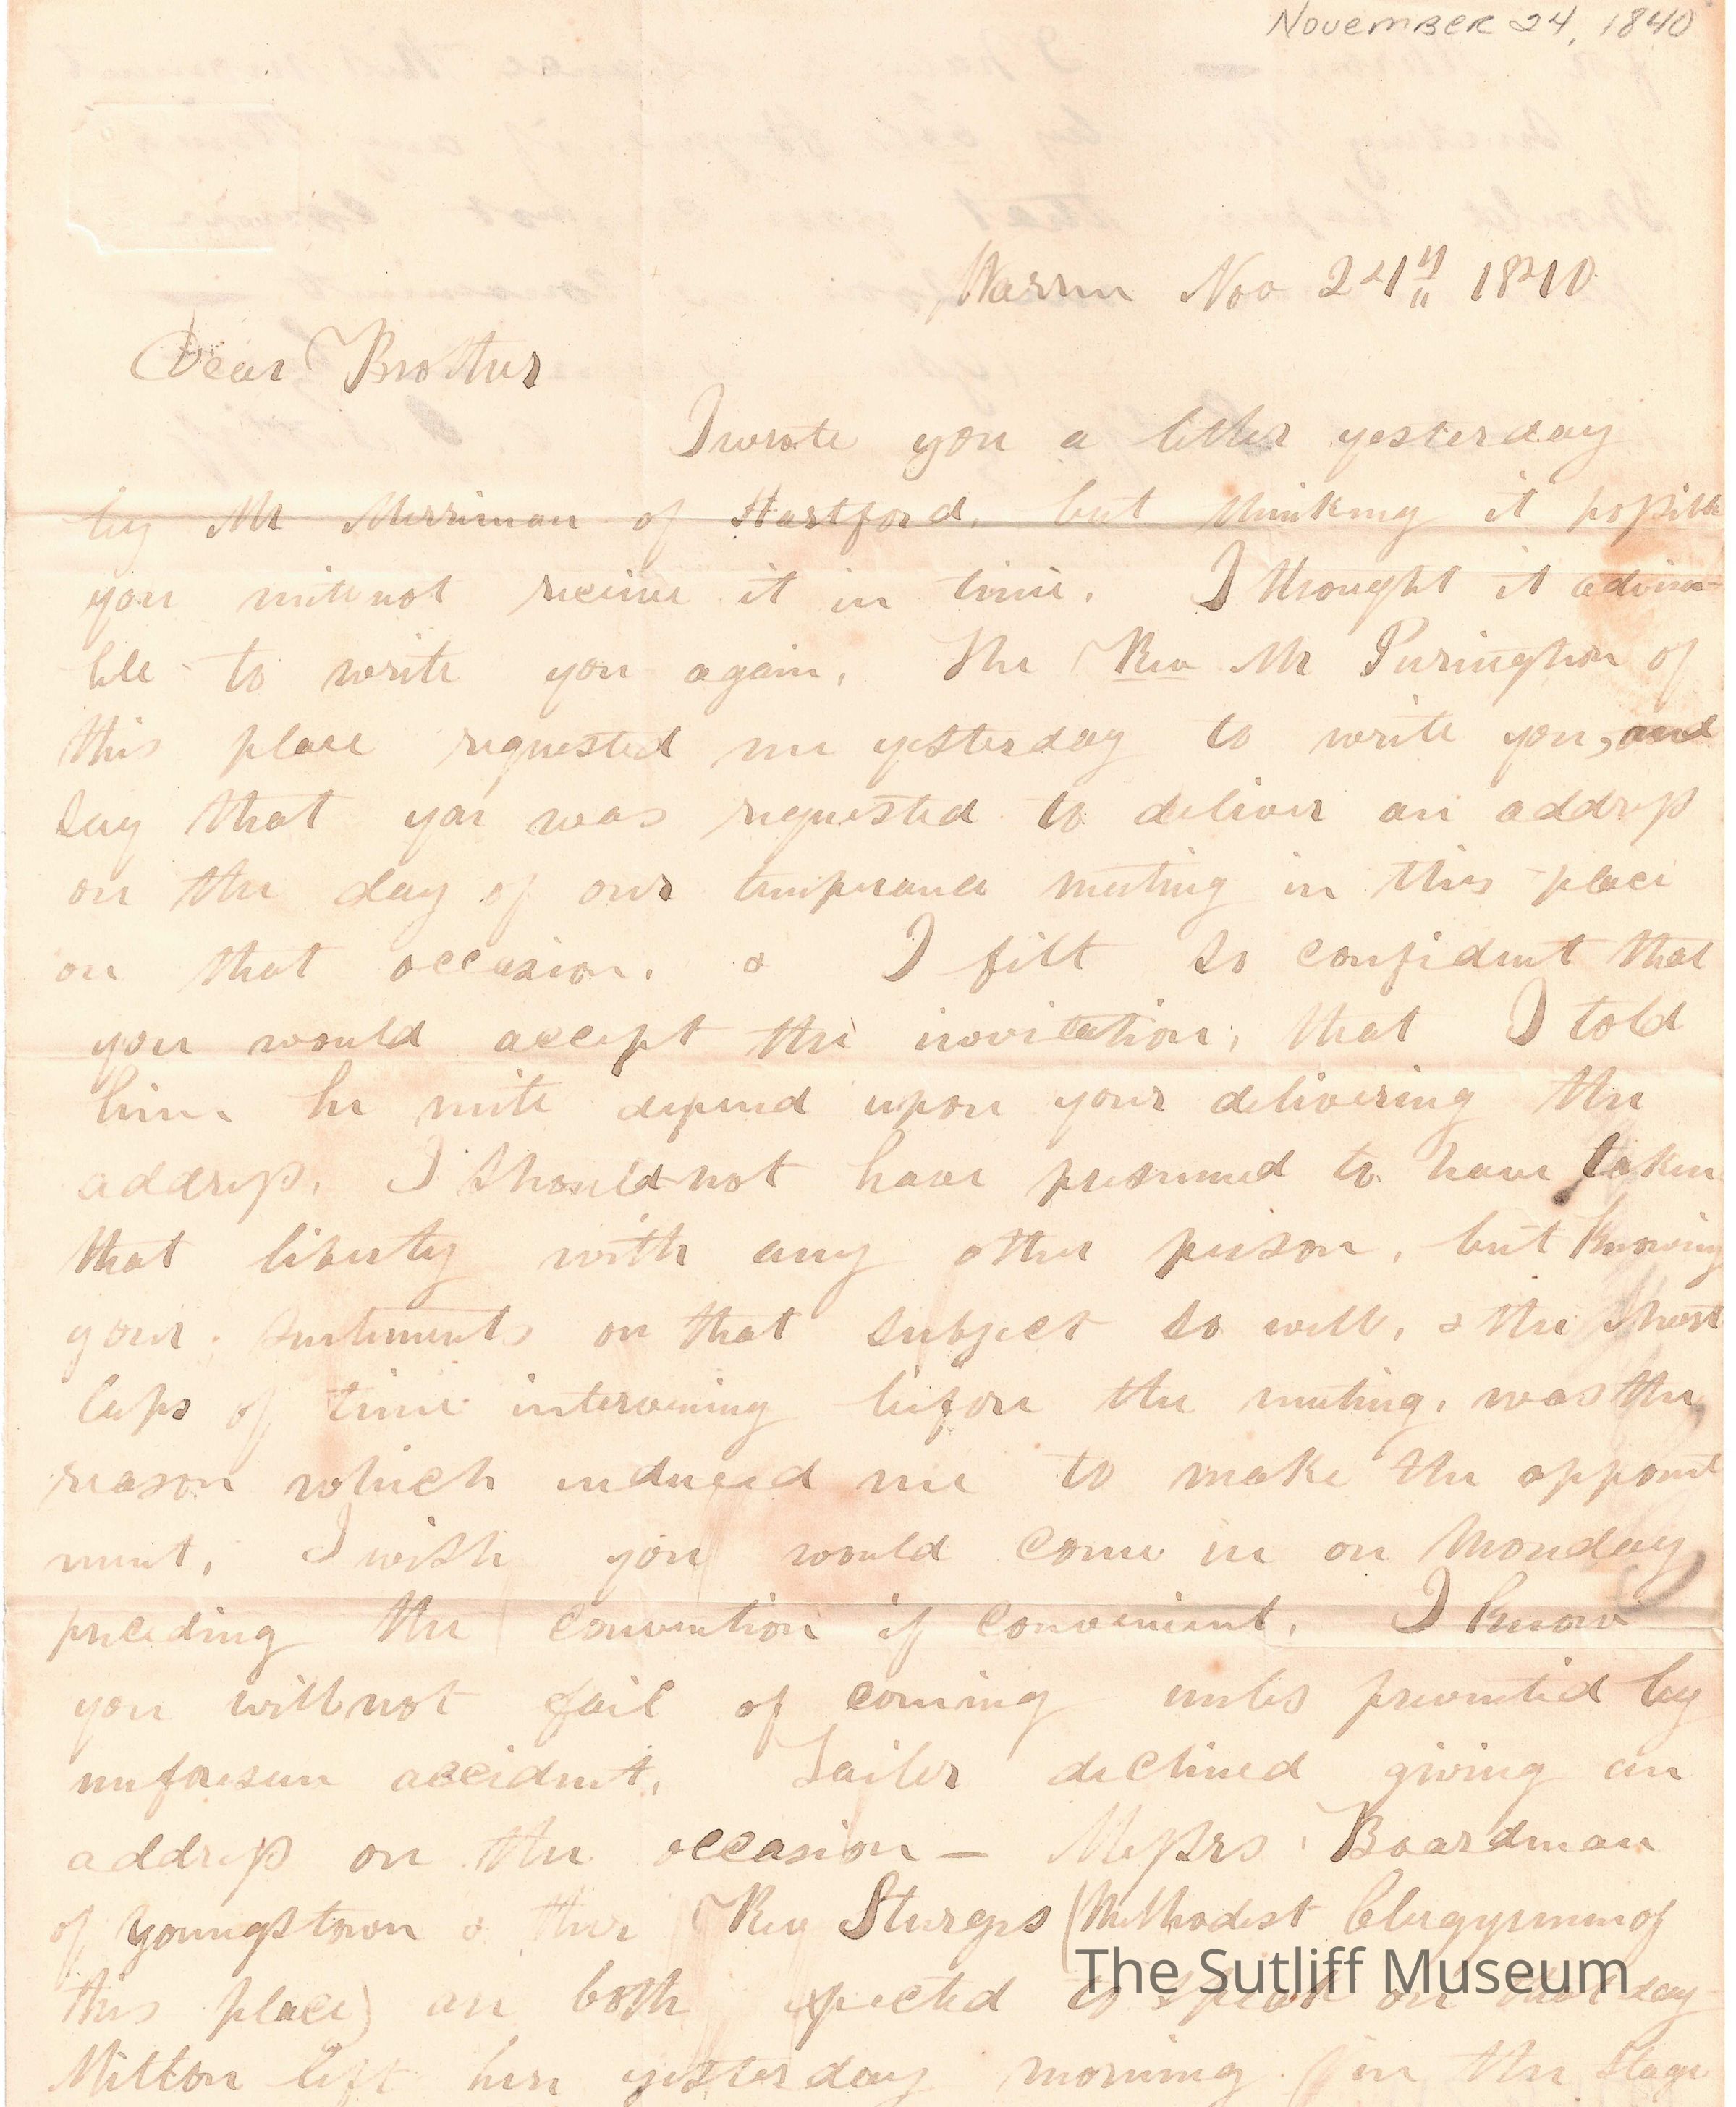 November 24, 1840
Warren Nov 24th 1840
Dear Brother
I wrote you a letter yesterday
by Mr Merriman of Hartford, but thinking it possible
you mite not receive it in time. I thought it advisa-
ble to write you again. The Rev Mr Purington of
this place requested me yesterday to write you, and
say that you was requested to deliver an address
on the day of our temperance meeting in this place
on that occasion. & I felt so confident that
you would accept the invitation, that I told
him he mite depend upon your delivering the
address. I should not have presumed to have taken
that liberty with any other person, but knowing
your sentiments on that subject so well, & the short
laps of time intervening before the meeting, was the
reason which induced me to make the appoint
ment. I wish you would come in on Monday
preceding the convention if convenient. I know
you will not fail of coming unless prevented by
unforeseen accident. Tailer declined giving an
address on the occasion — Messrs Boardman
of Youngstown & the Rev Sturges (Methodist Clergymen of
this place) are both expected to speak on that day
Milton left here yesterday morning (in the Stage
The Sutliff Museum